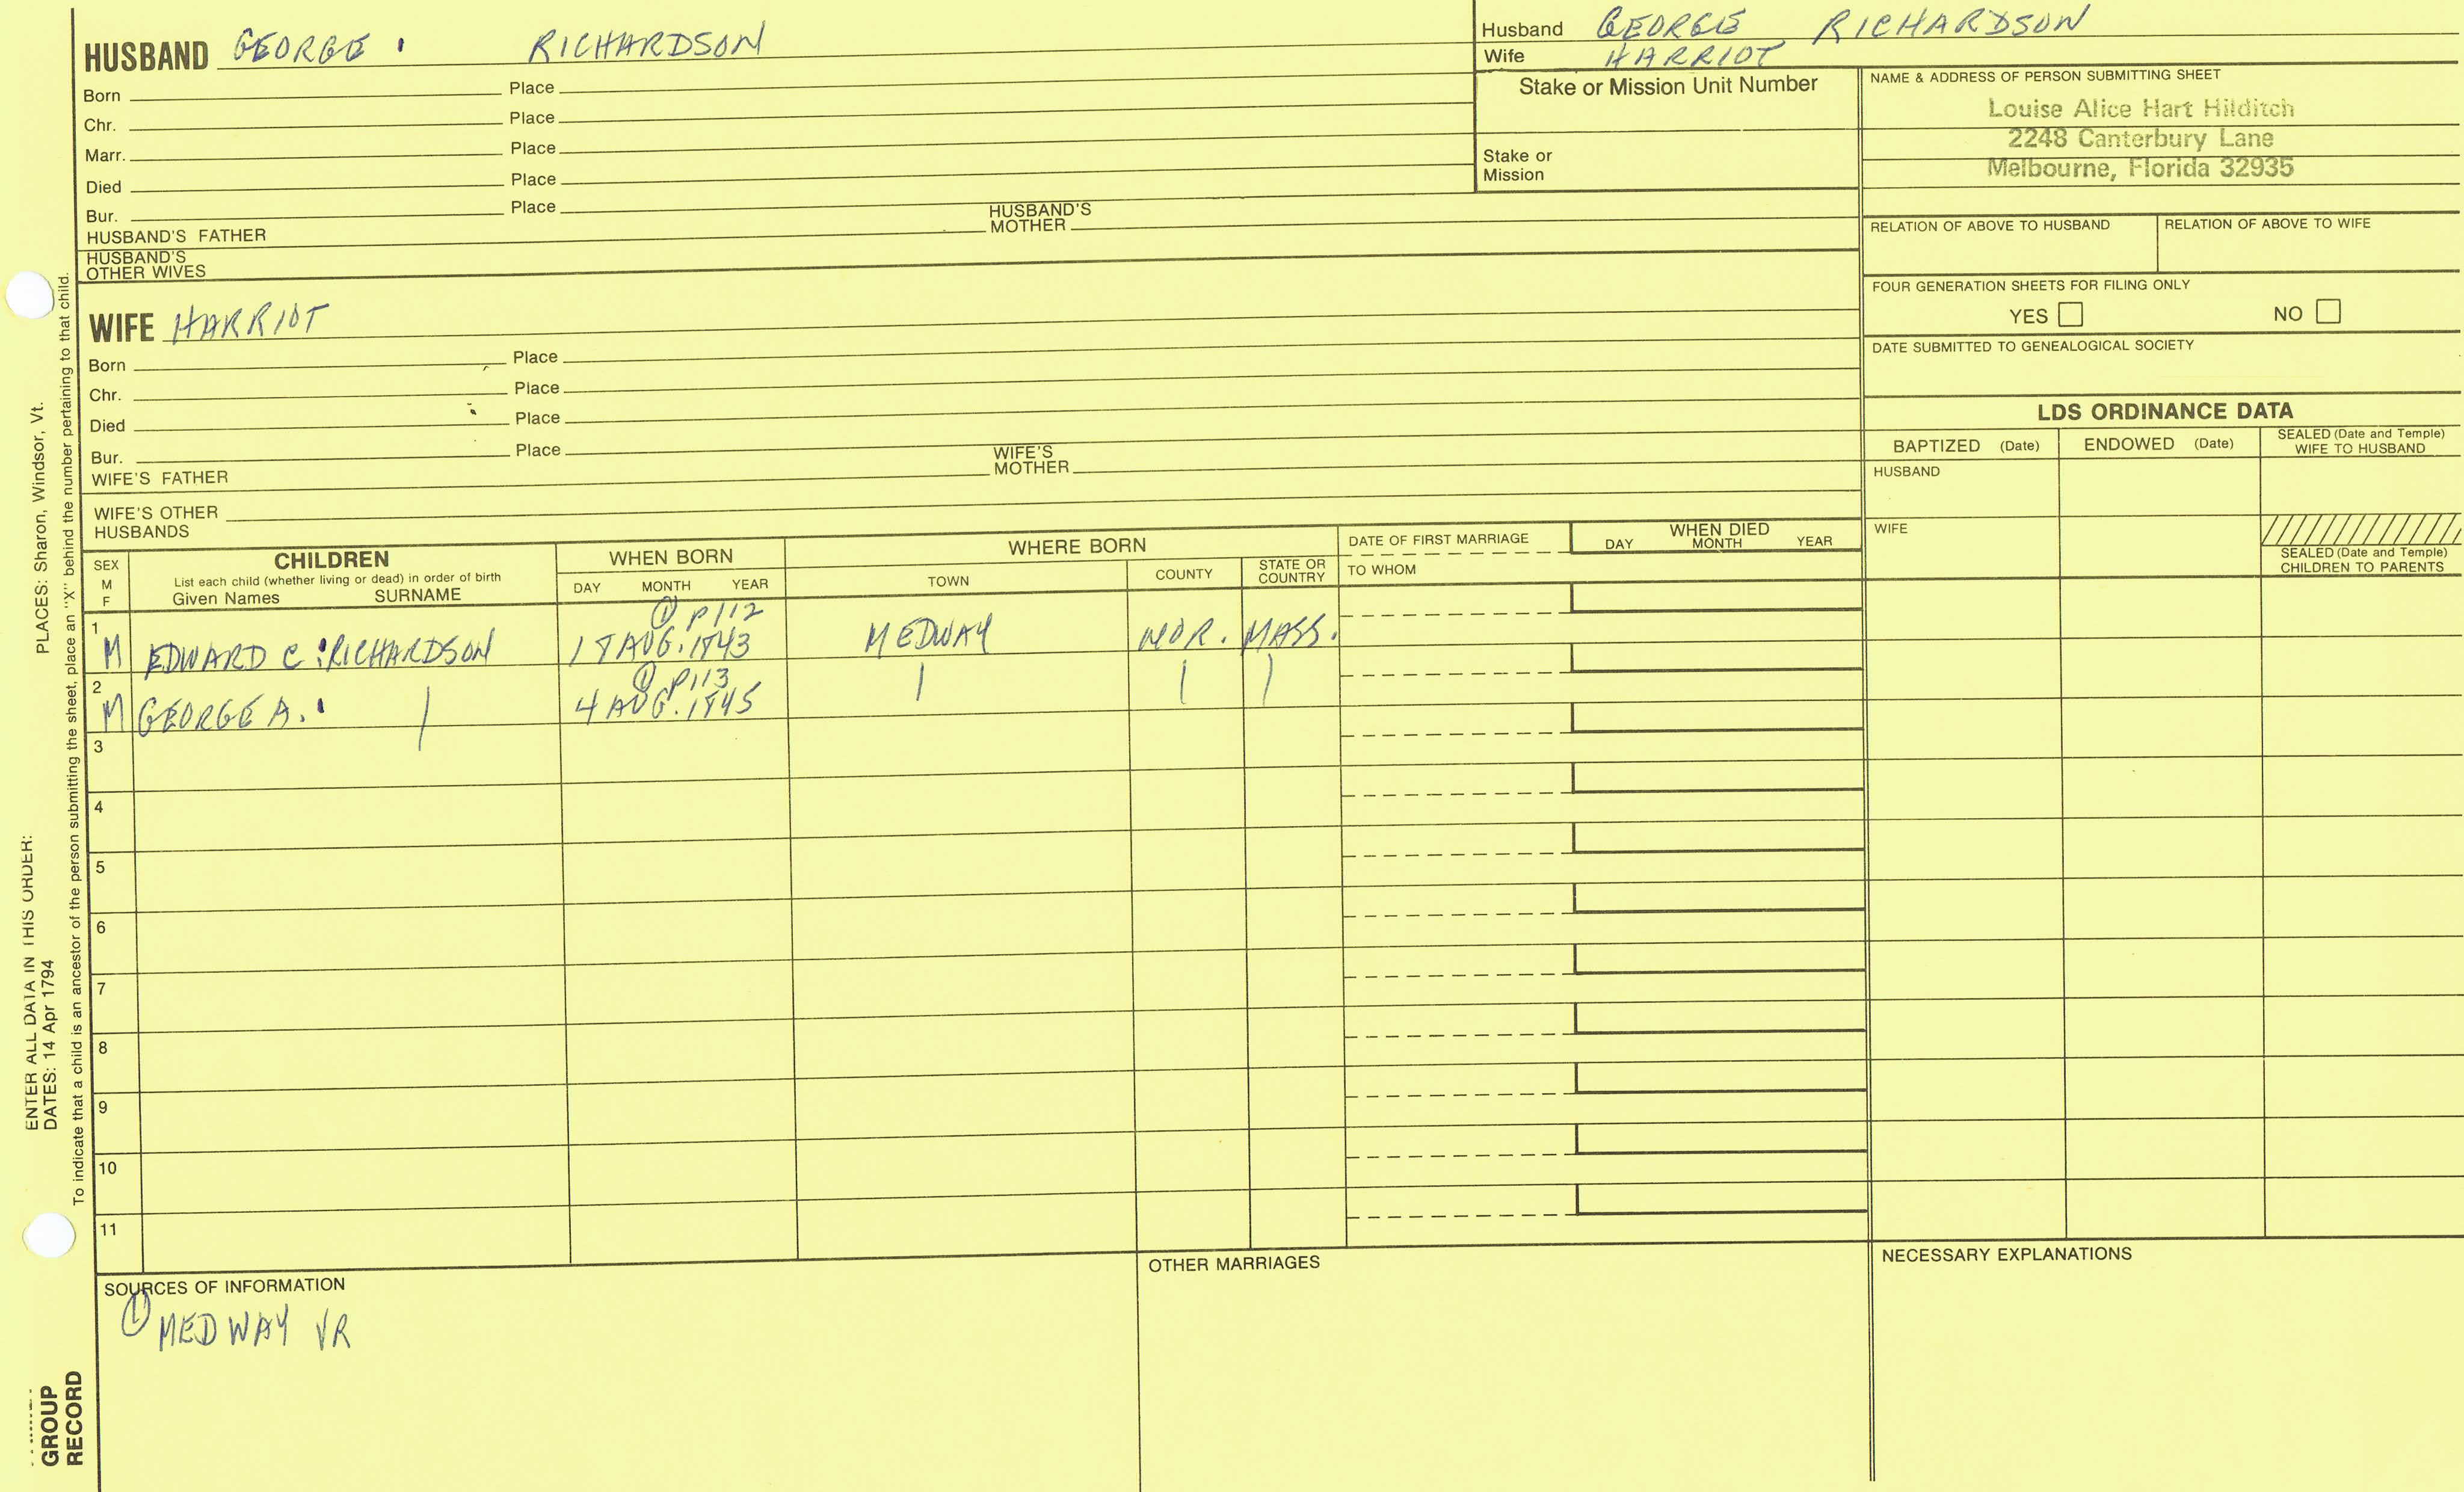 HUSBAND GEORGE RICHARDSON
Born Place
Chr. Place
Marr. Place
Died Place
Bur. Place
HUSBAND'S FATHER HUSBAND'S MOTHER
HUSBAND'S OTHER WIVES
Husband GEORGE RICHARDSON
Wife HARRIOT
Stake or Mission Unit Number
Stake or Mission
NAME & ADDRESS OF PERSON SUBMITTING SHEET
Louise Alice Hart Hilditch
2248 Canterbury Lane
Melbourne, Florida 32935
RELATION OF ABOVE TO HUSBAND RELATION OF ABOVE TO WIFE
FOUR GENERATION SHEETS FOR FILING ONLY
YES NO
DATE SUBMITTED TO GENEALOGICAL SOCIETY
WIFE HARRIOT
Born Place
Chr. Place
Died Place
Bur. Place
WIFE'S FATHER WIFE'S MOTHER
WIFE'S OTHER HUSBANDS
LDS ORDINANCE DATA
BAPTIZED (Date) ENDOWED (Date) SEALED (Date and Temple) WIFE TO HUSBAND
HUSBAND
WIFE
SEALED (Date and Temple) CHILDREN TO PARENTS
SEX M F
CHILDREN
List each child (whether living or dead) in order of birth
Given Names SURNAME
WHEN BORN
DAY MONTH YEAR
WHERE BORN
TOWN COUNTY STATE OR COUNTRY
DATE OF FIRST MARRIAGE
TO WHOM
WHEN DIED
DAY MONTH YEAR
① P112
1 M EDWARD C. RICHARDSON 18 AUG. 1843 MEDWAY NOR. MASS.
① P113
2 M GEORGE A. 4 AUG. 1845
3
4
5
6
7
8
9
10
11
SOURCES OF INFORMATION
① MEDWAY VR
OTHER MARRIAGES
NECESSARY EXPLANATIONS
PLACES: Sharon, Windsor, Vt.
ENTER ALL DATA IN THIS ORDER:
DATES: 14 Apr 1794
To indicate that a child is an ancestor of the person submitting the sheet, place an "X" behind the number pertaining to that child.
GROUP
RECORD